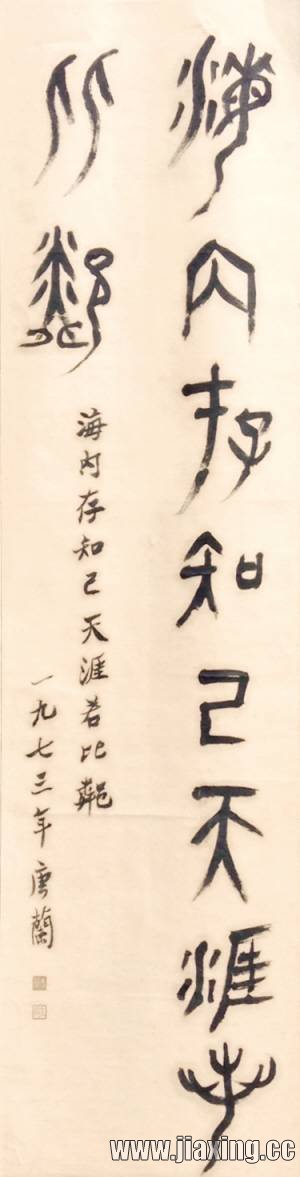 海内存知己天涯若
比鄰
海内存知己天涯若比鄰
一九七三年唐蘭
www.jiaxing.cc